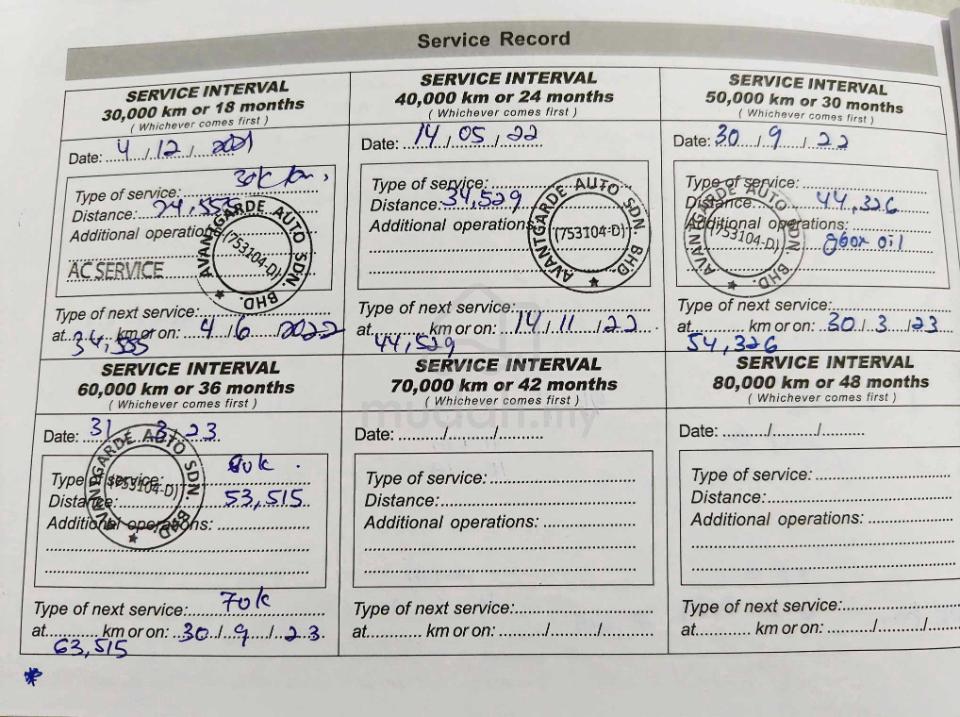 Service Record
SERVICE INTERVAL
30,000 km or 18 months
( Whichever comes first )
Date: 4 / 12 / 2021
Type of service: 30k km,
Distance: 24,555
Additional operations
AC SERVICE
AVANTGARDE AUTO SDN. BHD.
(753104-D)
Type of next service:
at 34,555 km or on: 4 / 6 / 2022
SERVICE INTERVAL
40,000 km or 24 months
( Whichever comes first )
Date: 14 / 05 / 22
Type of service:
Distance: 34,529
Additional operations
AVANTGARDE AUTO SDN. BHD.
(753104-D)
Type of next service:
at 44,529 km or on: 14 / 11 / 22
SERVICE INTERVAL
50,000 km or 30 months
( Whichever comes first )
Date: 30 / 9 / 22
Type of service:
Distance: 44,326
Additional operations: gbox oil
AVANTGARDE AUTO SDN. BHD.
(753104-D)
Type of next service:
at 54,326 km or on: 30 / 3 / 23
SERVICE INTERVAL
60,000 km or 36 months
( Whichever comes first )
Date: 31 / 3 / 23
Type of service:
Distance: 53,515
Additional operations:
AVANTGARDE AUTO SDN. BHD.
(753104-D)
Type of next service: 70k
at 63,515 km or on: 30 / 9 / 23
SERVICE INTERVAL
70,000 km or 42 months
( Whichever comes first )
Date: / /
Type of service:
Distance:
Additional operations:
Type of next service:
at km or on: / /
SERVICE INTERVAL
80,000 km or 48 months
( Whichever comes first )
Date: / /
Type of service:
Distance:
Additional operations:
Type of next service:
at km or on: / /
mudah.my